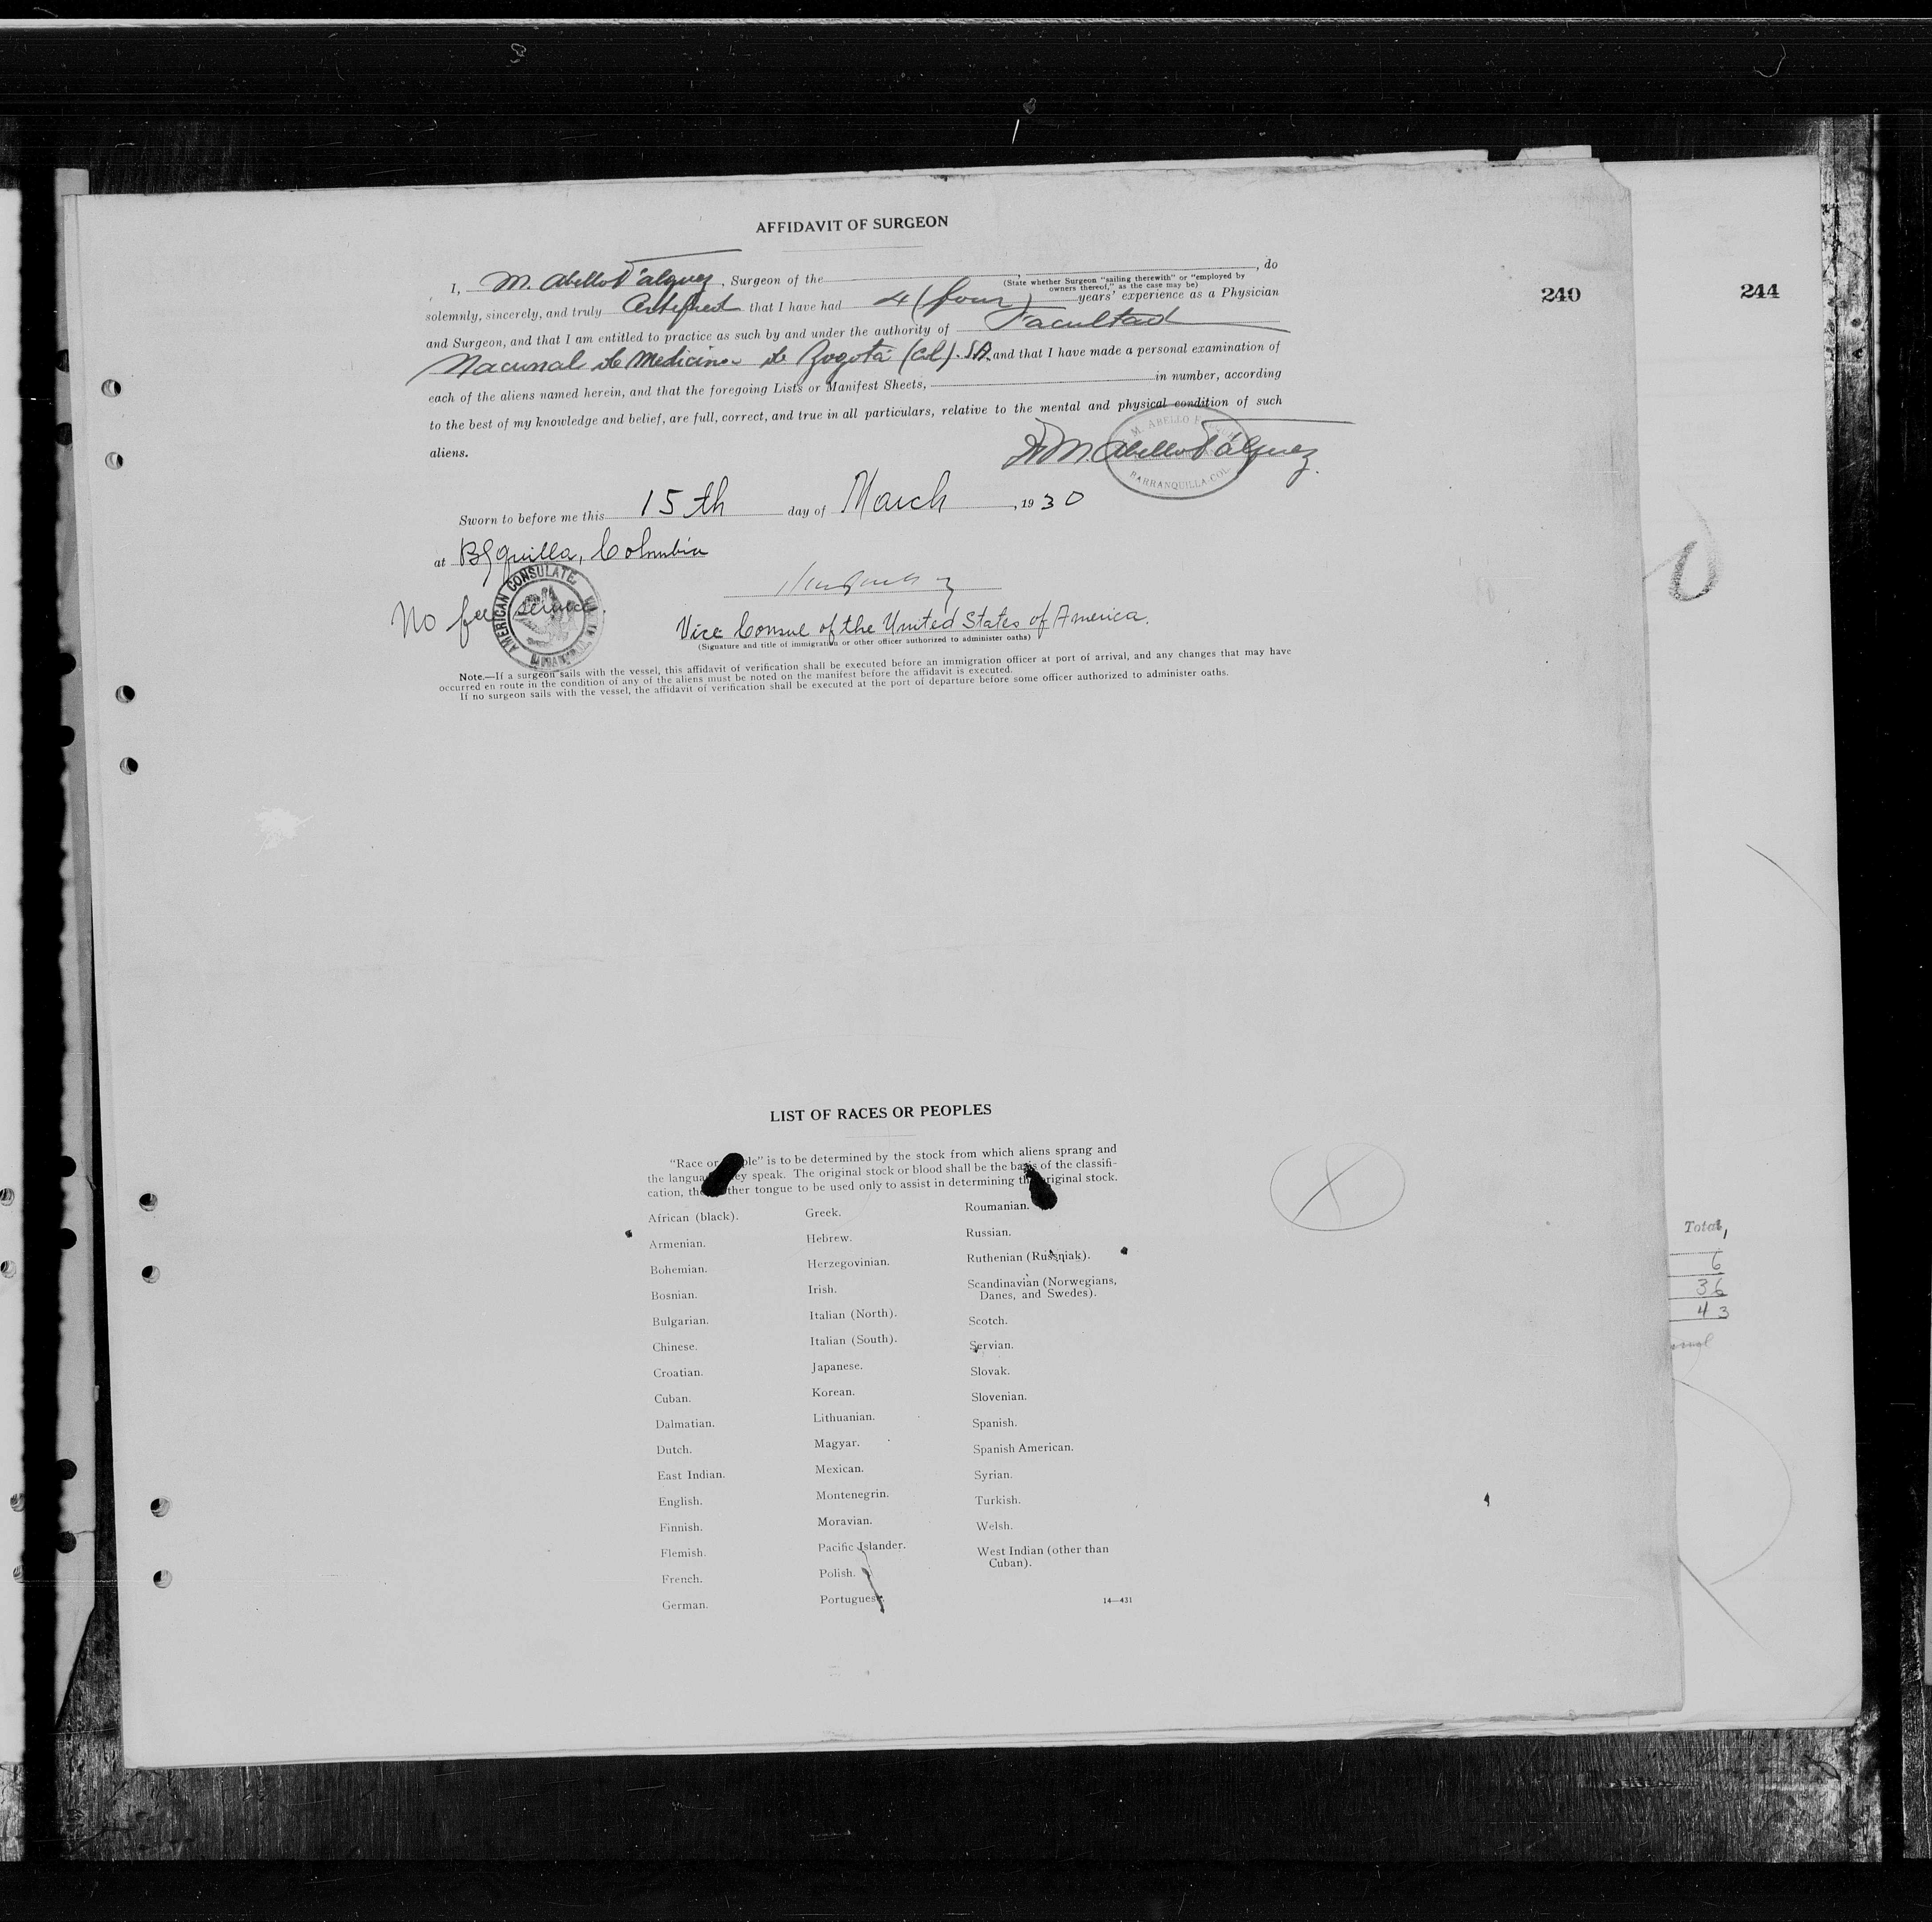 AFFIDAVIT OF SURGEON
I, M. Abello Falquez, Surgeon of the , do
(State whether Surgeon "sailing therewith" or "employed by
owners thereof," as the case may be)
solemnly, sincerely, and truly that I have had 4 (four) years' experience as a Physician
and Surgeon, and that I am entitled to practice as such by and under the authority of Facultad
Nacional de Medicina de Bogotá (Col). S.A. and that I have made a personal examination of
each of the aliens named herein, and that the foregoing Lists or Manifest Sheets, in number, according
to the best of my knowledge and belief, are full, correct, and true in all particulars, relative to the mental and physical condition of such
aliens.
M. ABELLO
BARRANQUILLA-COL.
Dr M. Abello Falquez.
Sworn to before me this 15th day of March, 1930
at B/quilla, Colombia
AMERICAN CONSULATE
No fee service.
Vice Consul of the United States of America.
(Signature and title of immigration or other officer authorized to administer oaths)
Note.—If a surgeon sails with the vessel, this affidavit of verification shall be executed before an immigration officer at port of arrival, and any changes that may have
occurred en route in the condition of any of the aliens must be noted on the manifest before the affidavit is executed.
If no surgeon sails with the vessel, the affidavit of verification shall be executed at the port of departure before some officer authorized to administer oaths.
240
244
LIST OF RACES OR PEOPLES
"Race or people" is to be determined by the stock from which aliens sprang and
the language they speak. The original stock or blood shall be the basis of the classifi-
cation, the mother tongue to be used only to assist in determining the original stock.
African (black).
Armenian.
Bohemian.
Bosnian.
Bulgarian.
Chinese.
Croatian.
Cuban.
Dalmatian.
Dutch.
East Indian.
English.
Finnish.
Flemish.
French.
German.
Greek.
Hebrew.
Herzegovinian.
Irish.
Italian (North).
Italian (South).
Japanese.
Korean.
Lithuanian.
Magyar.
Mexican.
Montenegrin.
Moravian.
Pacific Islander.
Polish.
Portuguese.
Roumanian.
Russian.
Ruthenian (Russniak).
Scandinavian (Norwegians,
Danes, and Swedes).
Scotch.
Servian.
Slovak.
Slovenian.
Spanish.
Spanish American.
Syrian.
Turkish.
Welsh.
West Indian (other than
Cuban).
14—431
Total,
6
36
43